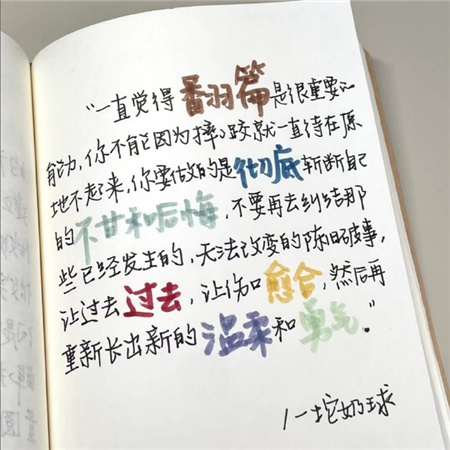 "一直觉得翻篇是很重要的
能力,你不能因为摔了跤就一直待在原
地不起来,你要做的是彻底斩断自己
的不甘和后悔,不要再去纠结那
些已经发生的,无法改变的陈旧破事,
让过去过去,让伤口愈合,然后再
重新长出新的温柔和勇气。"
/一坨奶球